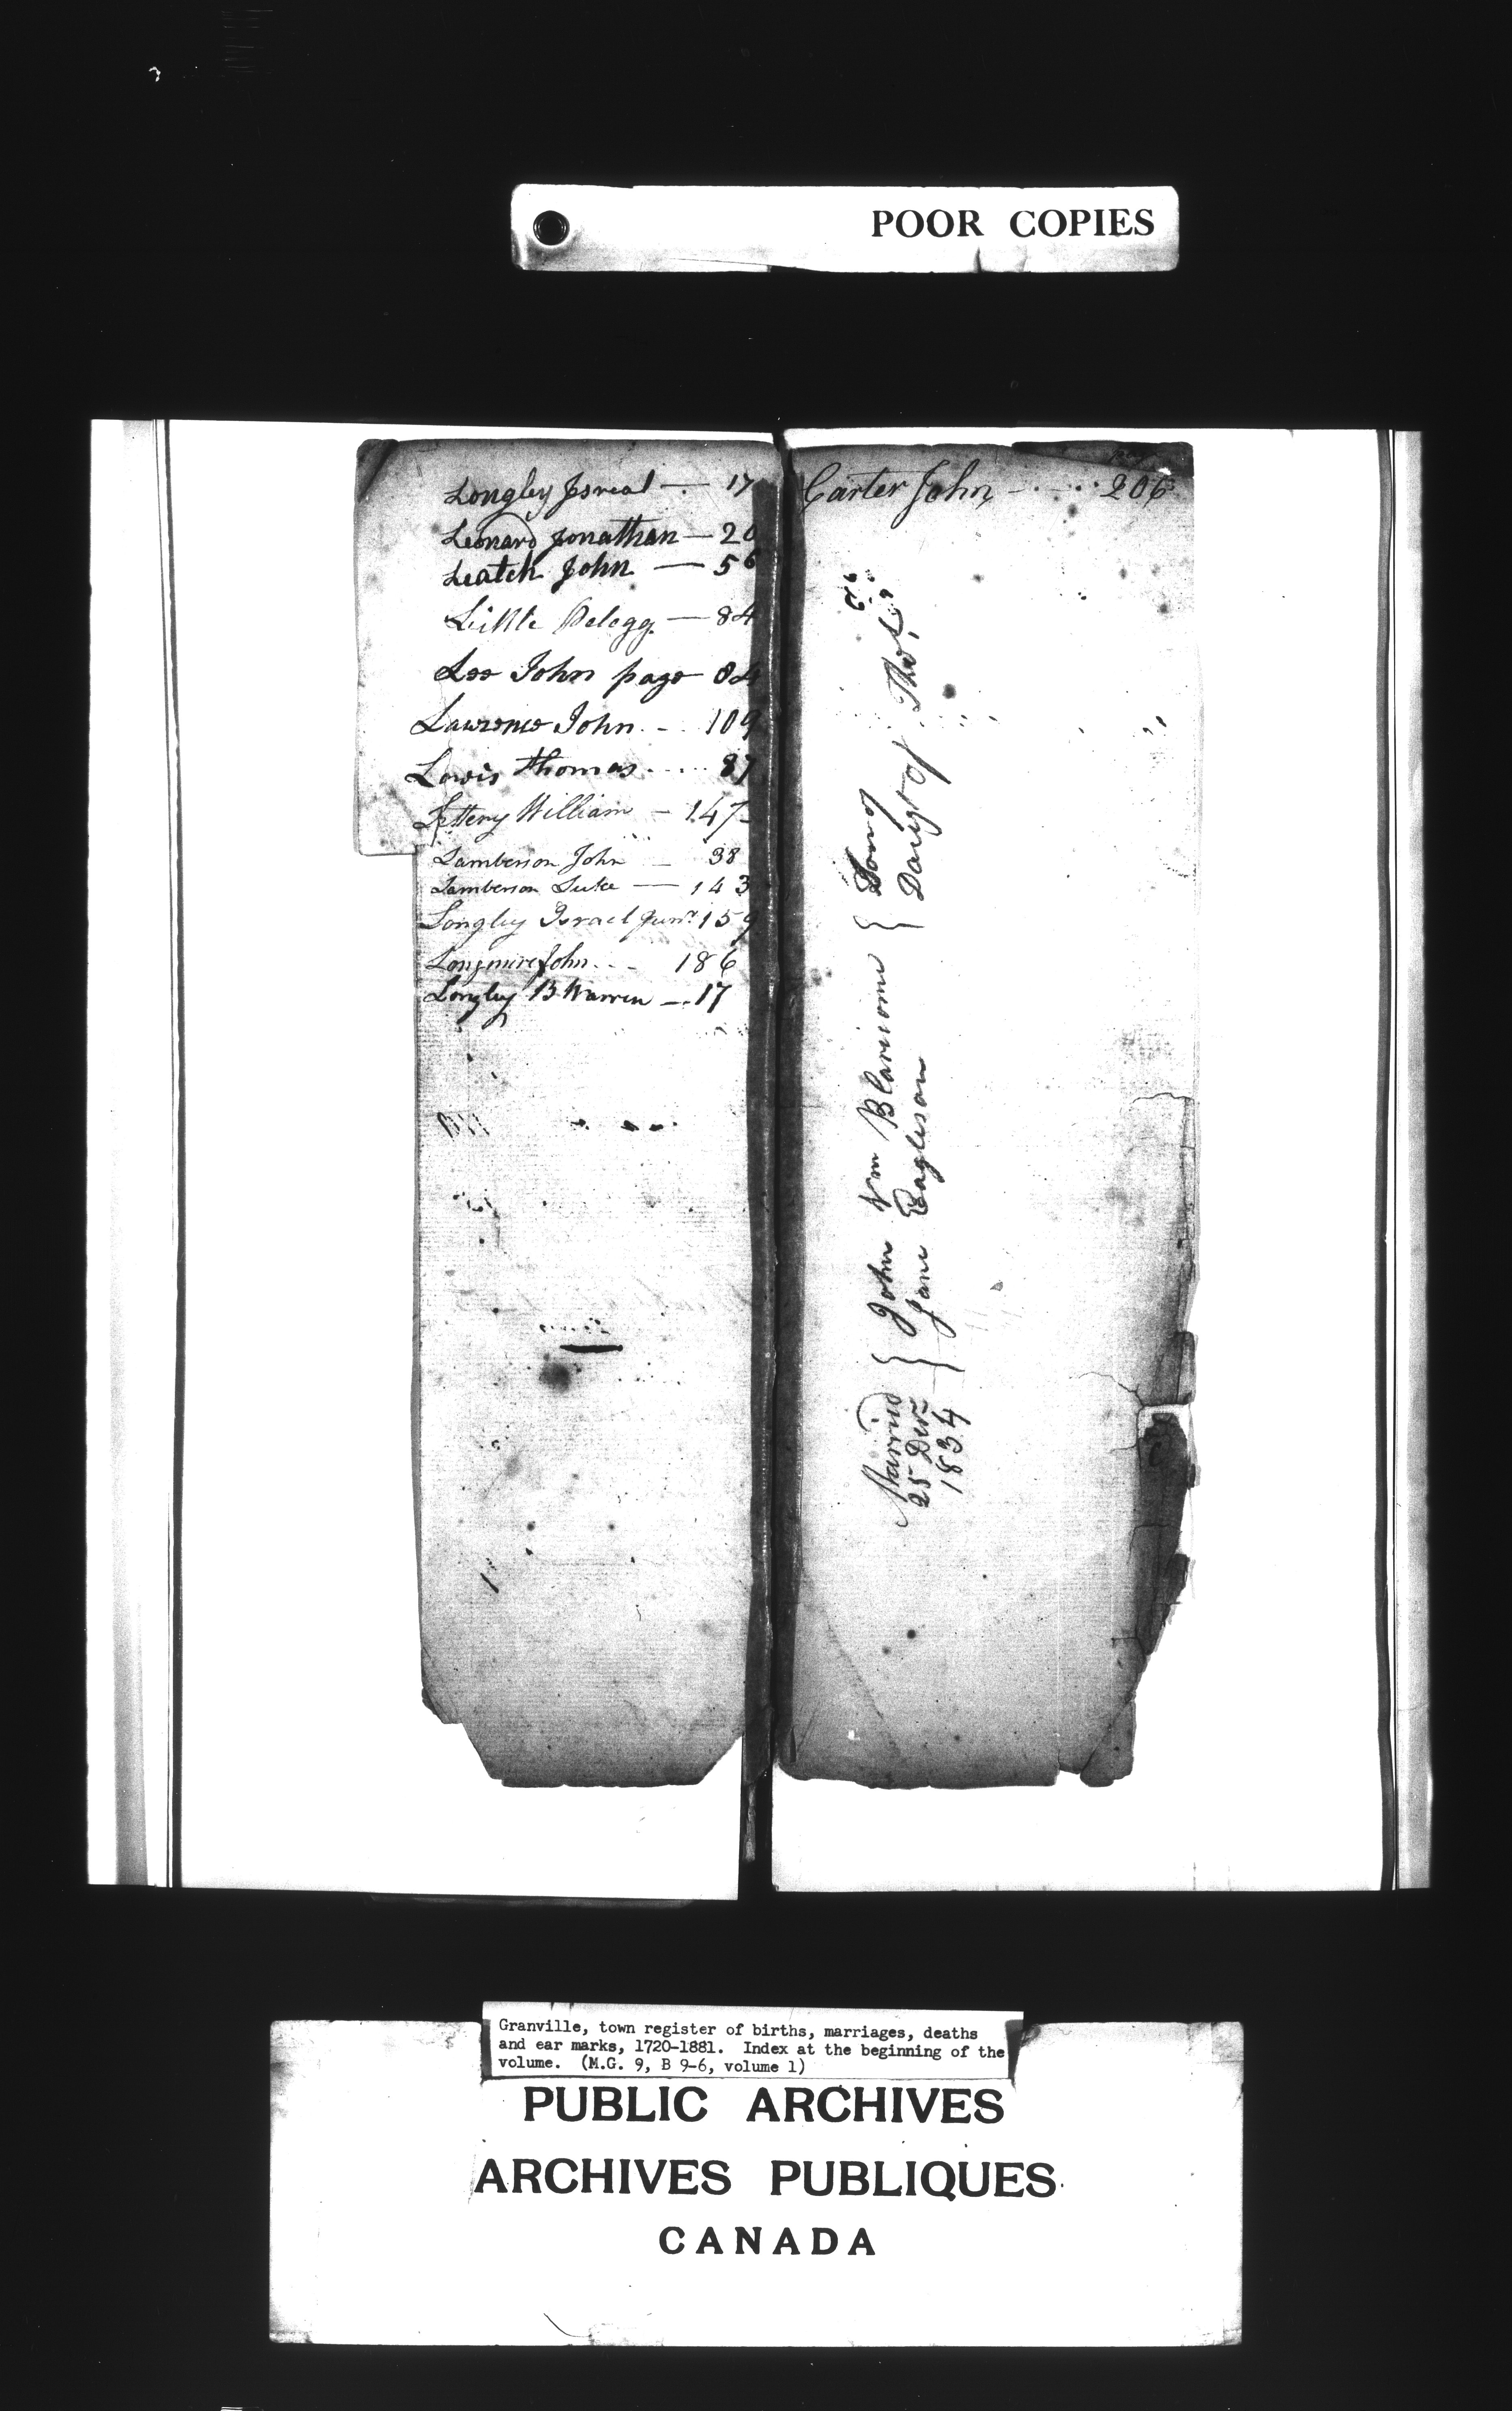 POOR COPIES
Longley Isreal — 17
Leonard Jonathan — 20
Leatch John — 56
Little Pelegg — 84
Lee John page 84
Lawrence John - - 109
Lewis Thomas .... 87
William — 147
Lamberson John — 38
Lamberson Luke — 143
Longley Israel Junr 159
Longmire John - - - 186
Longley B Warren — 17
page
Carter John - . - . . 206
Married
25 Decr
1834
John Vn Blaricom
Jane Eagleson
Son of
Daugr of Thos
Granville, town register of births, marriages, deaths
and ear marks, 1720-1881. Index at the beginning of the
volume. (M.G. 9, B 9-6, volume 1)
PUBLIC ARCHIVES
ARCHIVES PUBLIQUES
CANADA